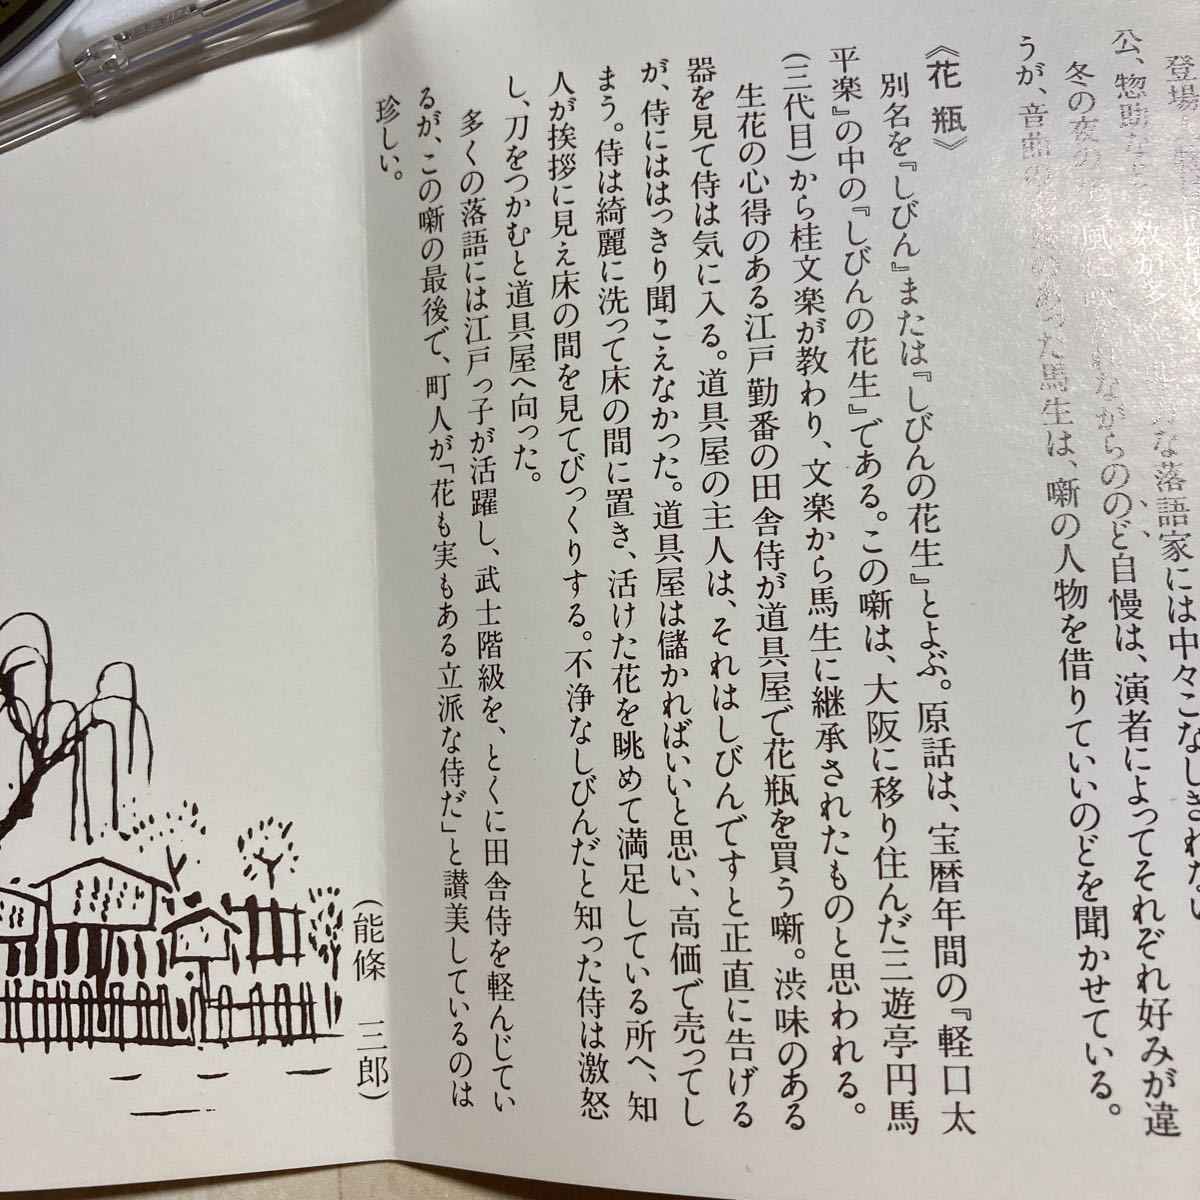 登場
な落語家には中々こなしきれない
公、惣助など
数が多
冬の夜の
風に
れながらののど自慢は、演者によってそれぞれ好みが違
うが、音曲の
のあった馬生は、噺の人物を借りていいのどを聞かせている。
《花瓶》
別名を『しびん』または『しびんの花生』とよぶ。原話は、宝暦年間の『軽口太
平楽』の中の『しびんの花生』である。この噺は、大阪に移り住んだ三遊亭円馬
(三代目)から桂文楽が教わり、文楽から馬生に継承されたものと思われる。
生花の心得のある江戸勤番の田舎侍が道具屋で花瓶を買う噺。渋味のある
器を見て侍は気に入る。道具屋の主人は、それはしびんですと正直に告げる
が、侍にははっきり聞こえなかった。道具屋は儲かればいいと思い、高価で売ってし
まう。侍は綺麗に洗って床の間に置き、活けた花を眺めて満足している所へ、知
人が挨拶に見え床の間を見てびっくりする。不浄なしびんだと知った侍は激怒
し、刀をつかむと道具屋へ向った。
多くの落語には江戸っ子が活躍し、武士階級を、とくに田舎侍を軽んじてい
るが、この噺の最後で、町人が「花も実もある立派な侍だ」と讃美しているのは
珍しい。
(能條 三郎)